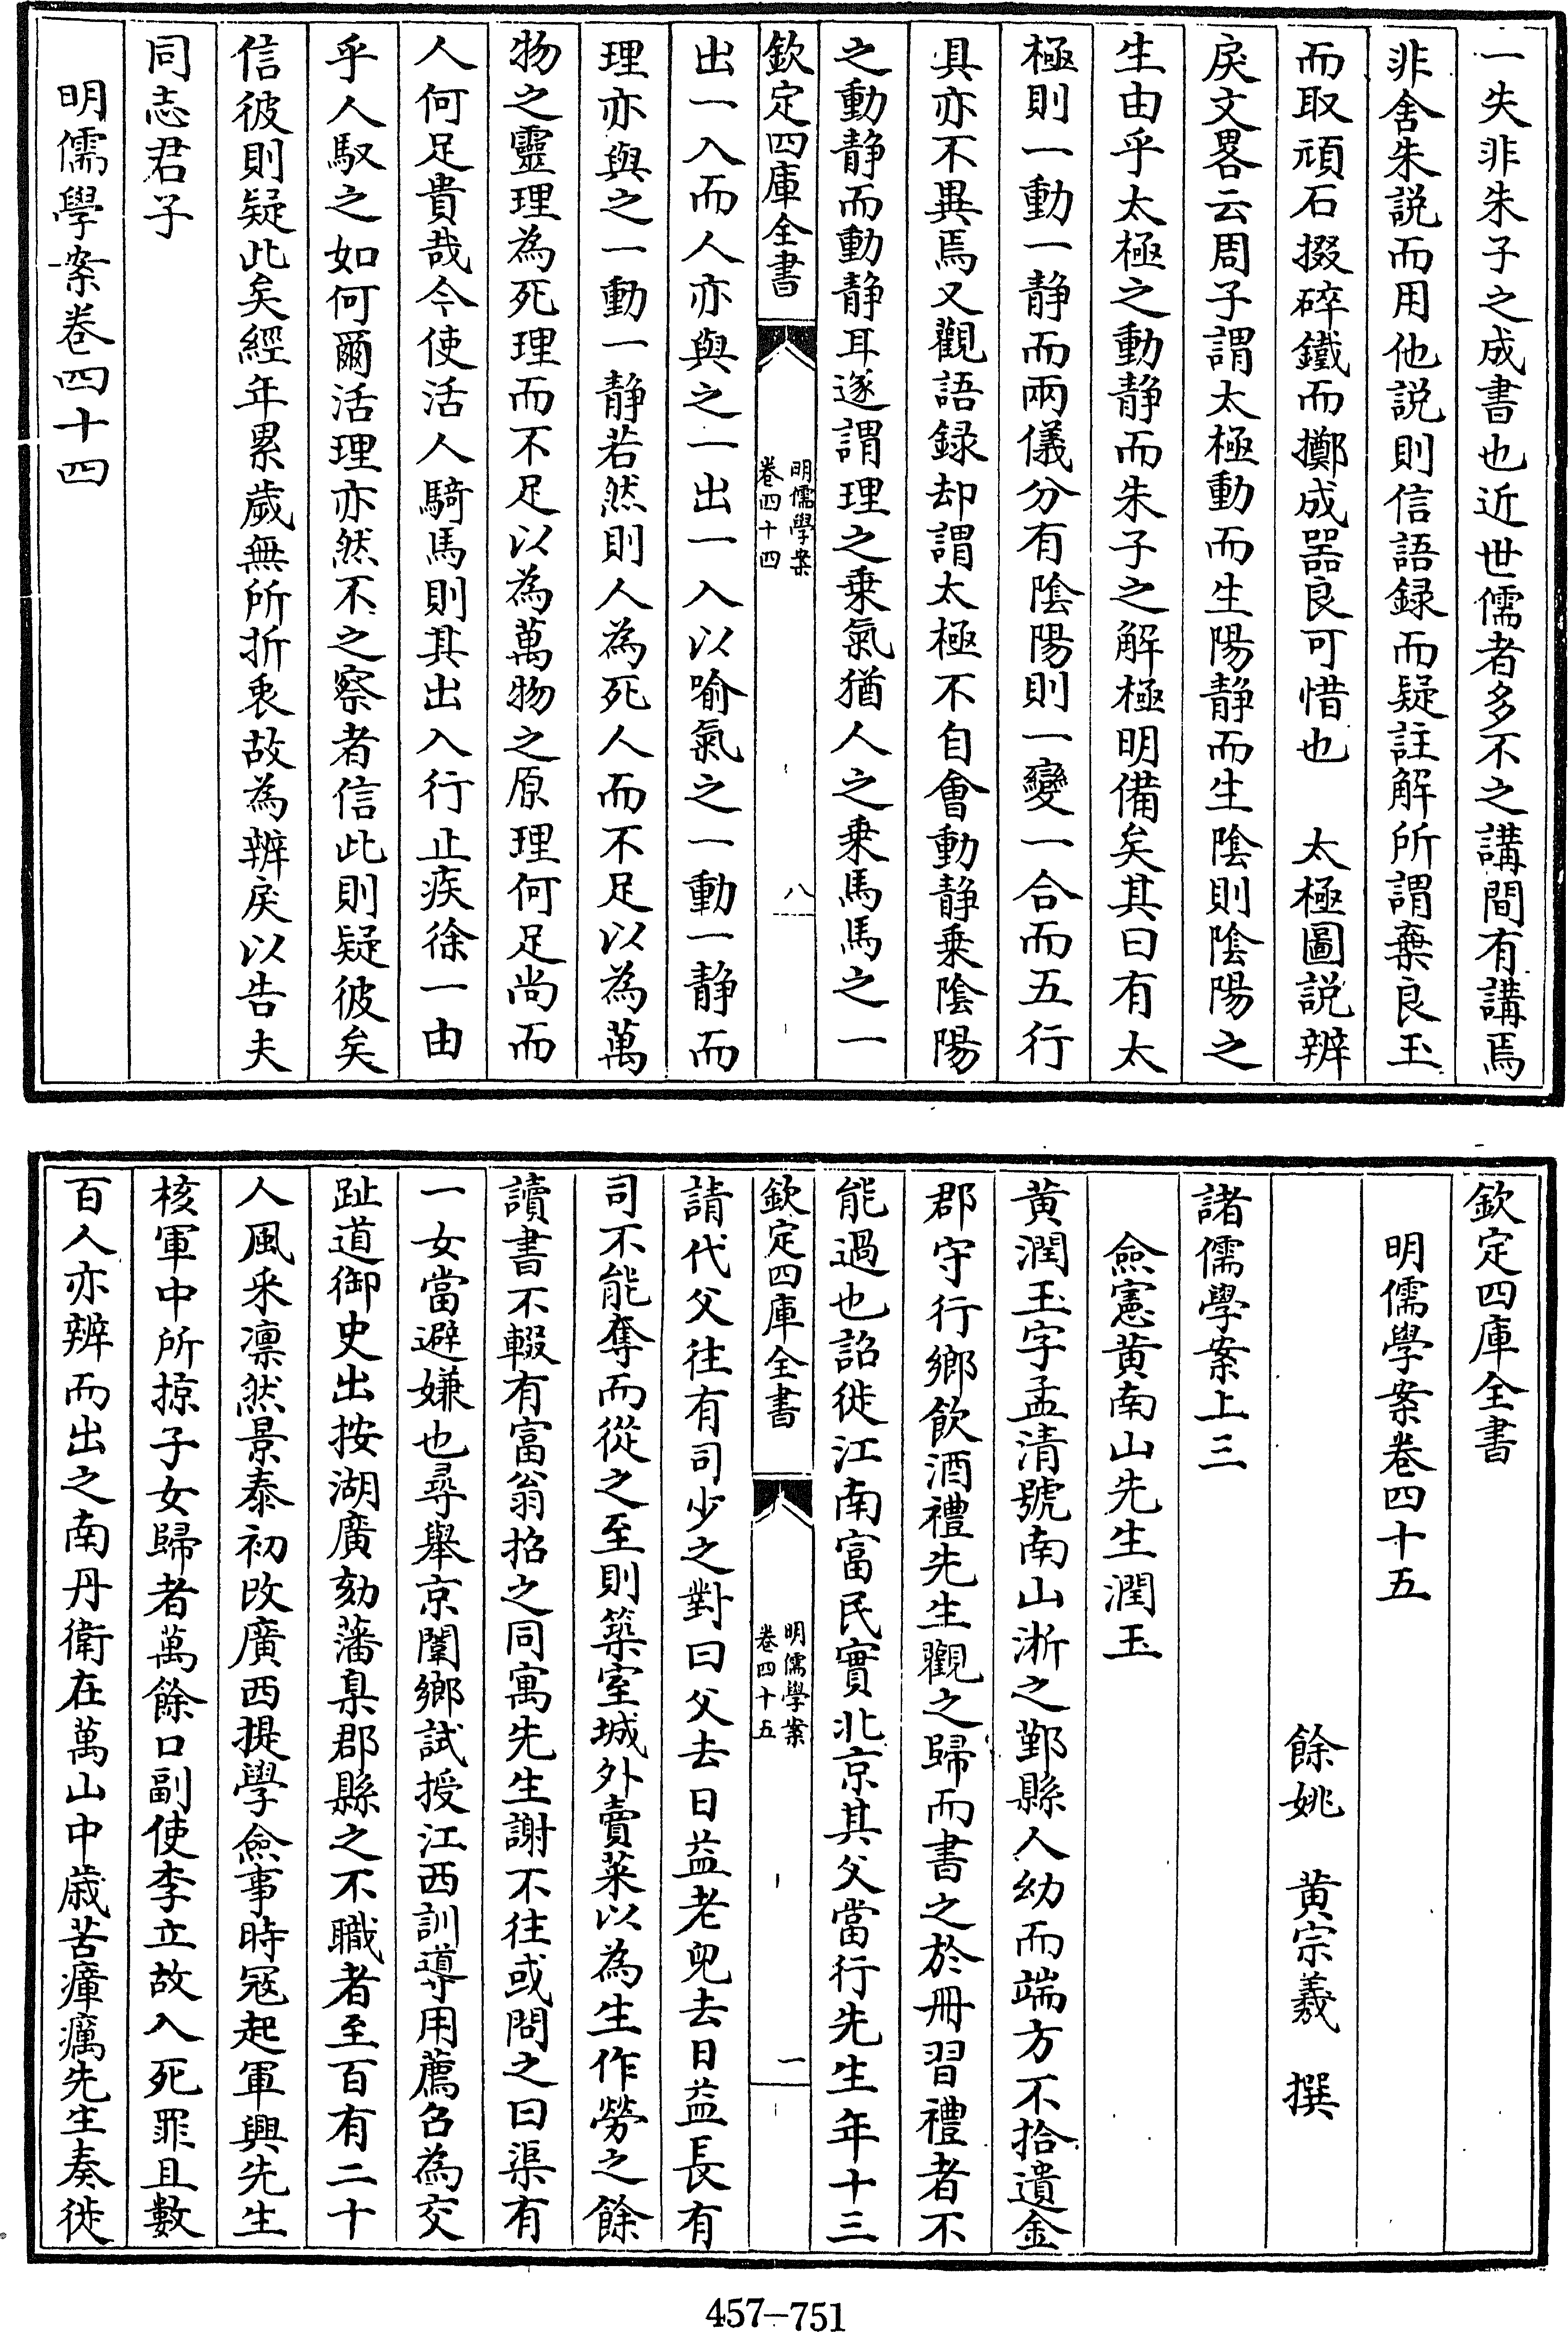 一失非朱子之成書也近世儒者多不之講間有講焉
非舍朱説而用他説則信語録而疑註解所謂棄良玉
而取頑石掇碎鐵而擲成器良可惜也　太極圖説辨
戾文畧云周子謂太極動而生陽静而生陰則陰陽之
生由乎太極之動静而朱子之解極明備矣其曰有太
極則一動一静而兩儀分有陰陽則一變一合而五行
具亦不異焉又觀語録却謂太極不自會動静乗陰陽
之動静而動静耳遂謂理之乗氣猶人之乗馬馬之一
欽定四庫全書
明儒學案
卷四十四
八
出一入而人亦與之一出一入以喻氣之一動一静而
理亦與之一動一静若然則人為死人而不足以為萬
物之靈理為死理而不足以為萬物之原理何足尚而
人何足貴哉今使活人騎馬則其出入行止疾徐一由
乎人馭之如何爾活理亦然不之察者信此則疑彼矣
信彼則疑此矣經年累歲無所折衷故為辨戾以告夫
同志君子
明儒學案卷四十四
欽定四庫全書
明儒學案卷四十五
餘姚　黄宗羲　撰
諸儒學案上三
僉憲黄南山先生潤玉
黄潤玉字孟清號南山浙之鄞縣人幼而端方不拾遺金
郡守行鄉飲酒禮先生觀之歸而書之於冊習禮者不
能過也詔徙江南富民實北京其父當行先生年十三
欽定四庫全書
明儒學案
卷四十五
一
請代父往有司少之對曰父去日益老兒去日益長有
司不能奪而從之至則築室城外賣菜以為生作勞之餘
讀書不輟有富翁招之同寓先生謝不往或問之曰渠有
一女當避嫌也尋舉京闈鄉試授江西訓導用薦召為交
趾道御史出按湖廣劾藩臬郡縣之不職者至百有二十
人風采凛然景泰初改廣西提學僉事時冦起軍興先生
核軍中所掠子女歸者萬餘口副使李立故入死罪且數
百人亦辨而出之南丹衛在萬山中歲苦瘴癘先生奏徙
457-751